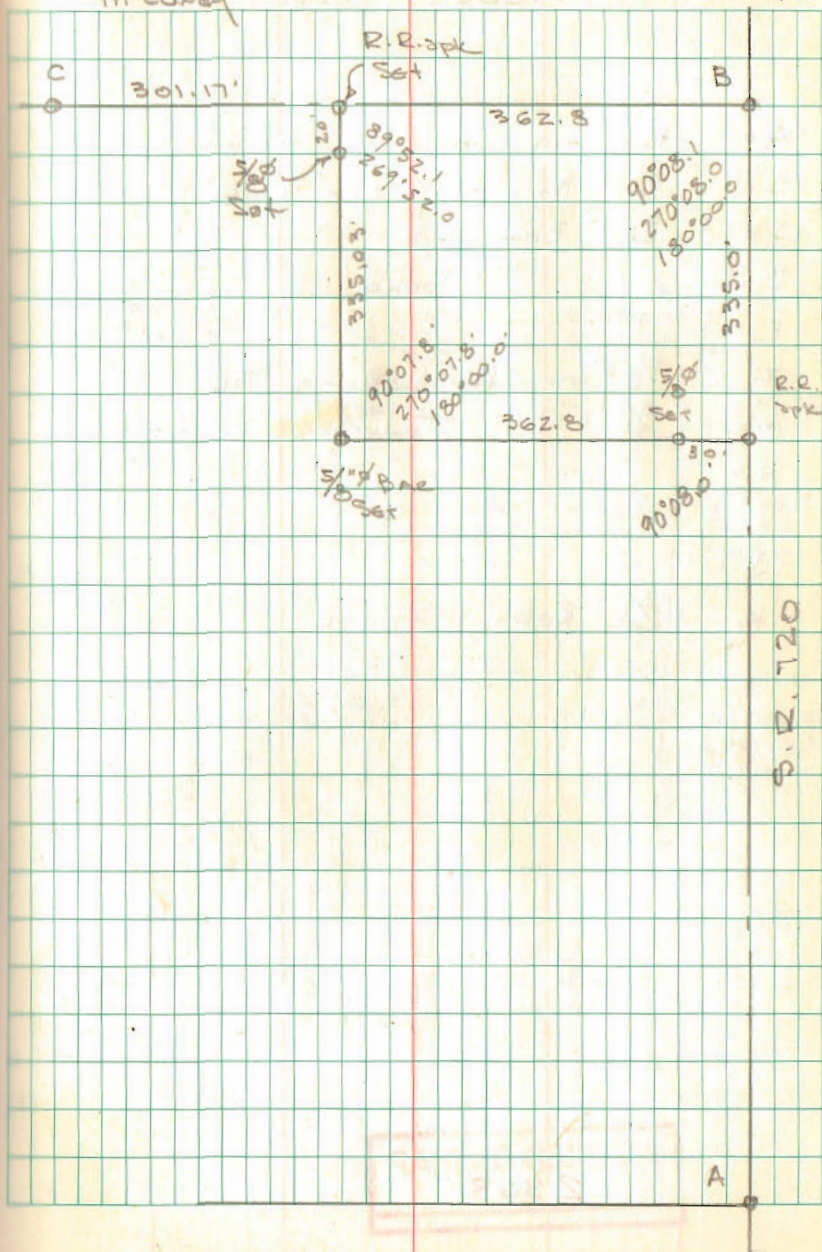 R.R. spk
Set
C
301.17'
B
362.8
20'
5/8 Ø
Set
89°52.1
269°52.0
90°08.1
270°08.0
180°00.0
335.03'
335.0'
90°07.8'
270°07.8'
180°00.0'
5/8 Ø
Set
R.R.
spk
362.8
30'
5/8" Ø Bar
Set
90°08.0'
S.R. 720
A